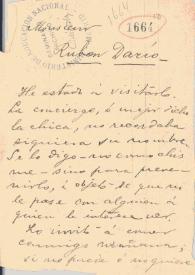 Monsieur
1664
1664
Rubén Darío.
He estado à visitarlo.
La concierge, ó mejor dicho
la chica, no recordaba
siquiera su nombre.
Se lo digo - no como chis
me - sino para preve-
nirlo, á objeto de que no
le pase con alguien á
quien le interese ver.
Lo invito á comer
conmigo mañana;
si no precisa ó no quiere